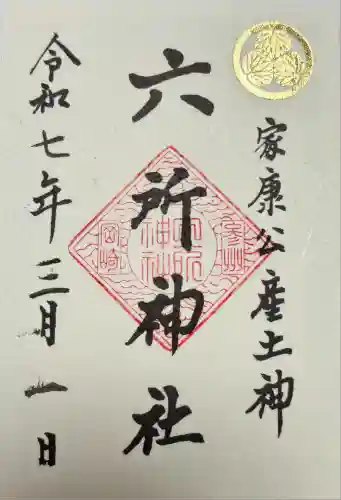 家康公産土神
六所神社
令和七年三月一日
六所神社
岡崎